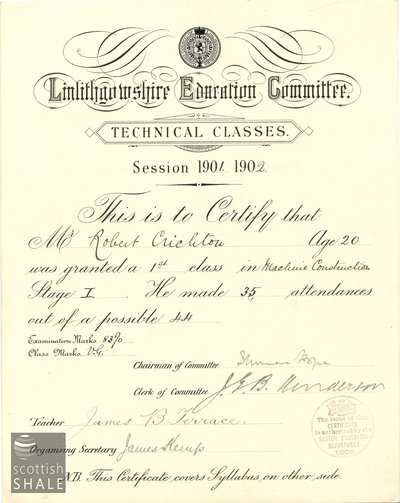 Linlithgowshire Education Committee.
TECHNICAL CLASSES.
Session 1901 1902
This is to Certify that
Mr Robert Crichton Age 20
was granted a 1st class in Machine Construction
Stage I. He made 35 attendances
out of a possible 44
Examination Marks 83%
Class Marks V.G.
Chairman of Committee Hope
Clerk of Committee J. G. B. Henderson
Teacher James B Terrace
Organising Secretary James Kemp
The issue of this
CERTIFICATE
is authorised by the
SCOTCH EDUCATION
DEPARTMENT
1900
NB. This Certificate covers Syllabus on other side.
scottish
SHALE